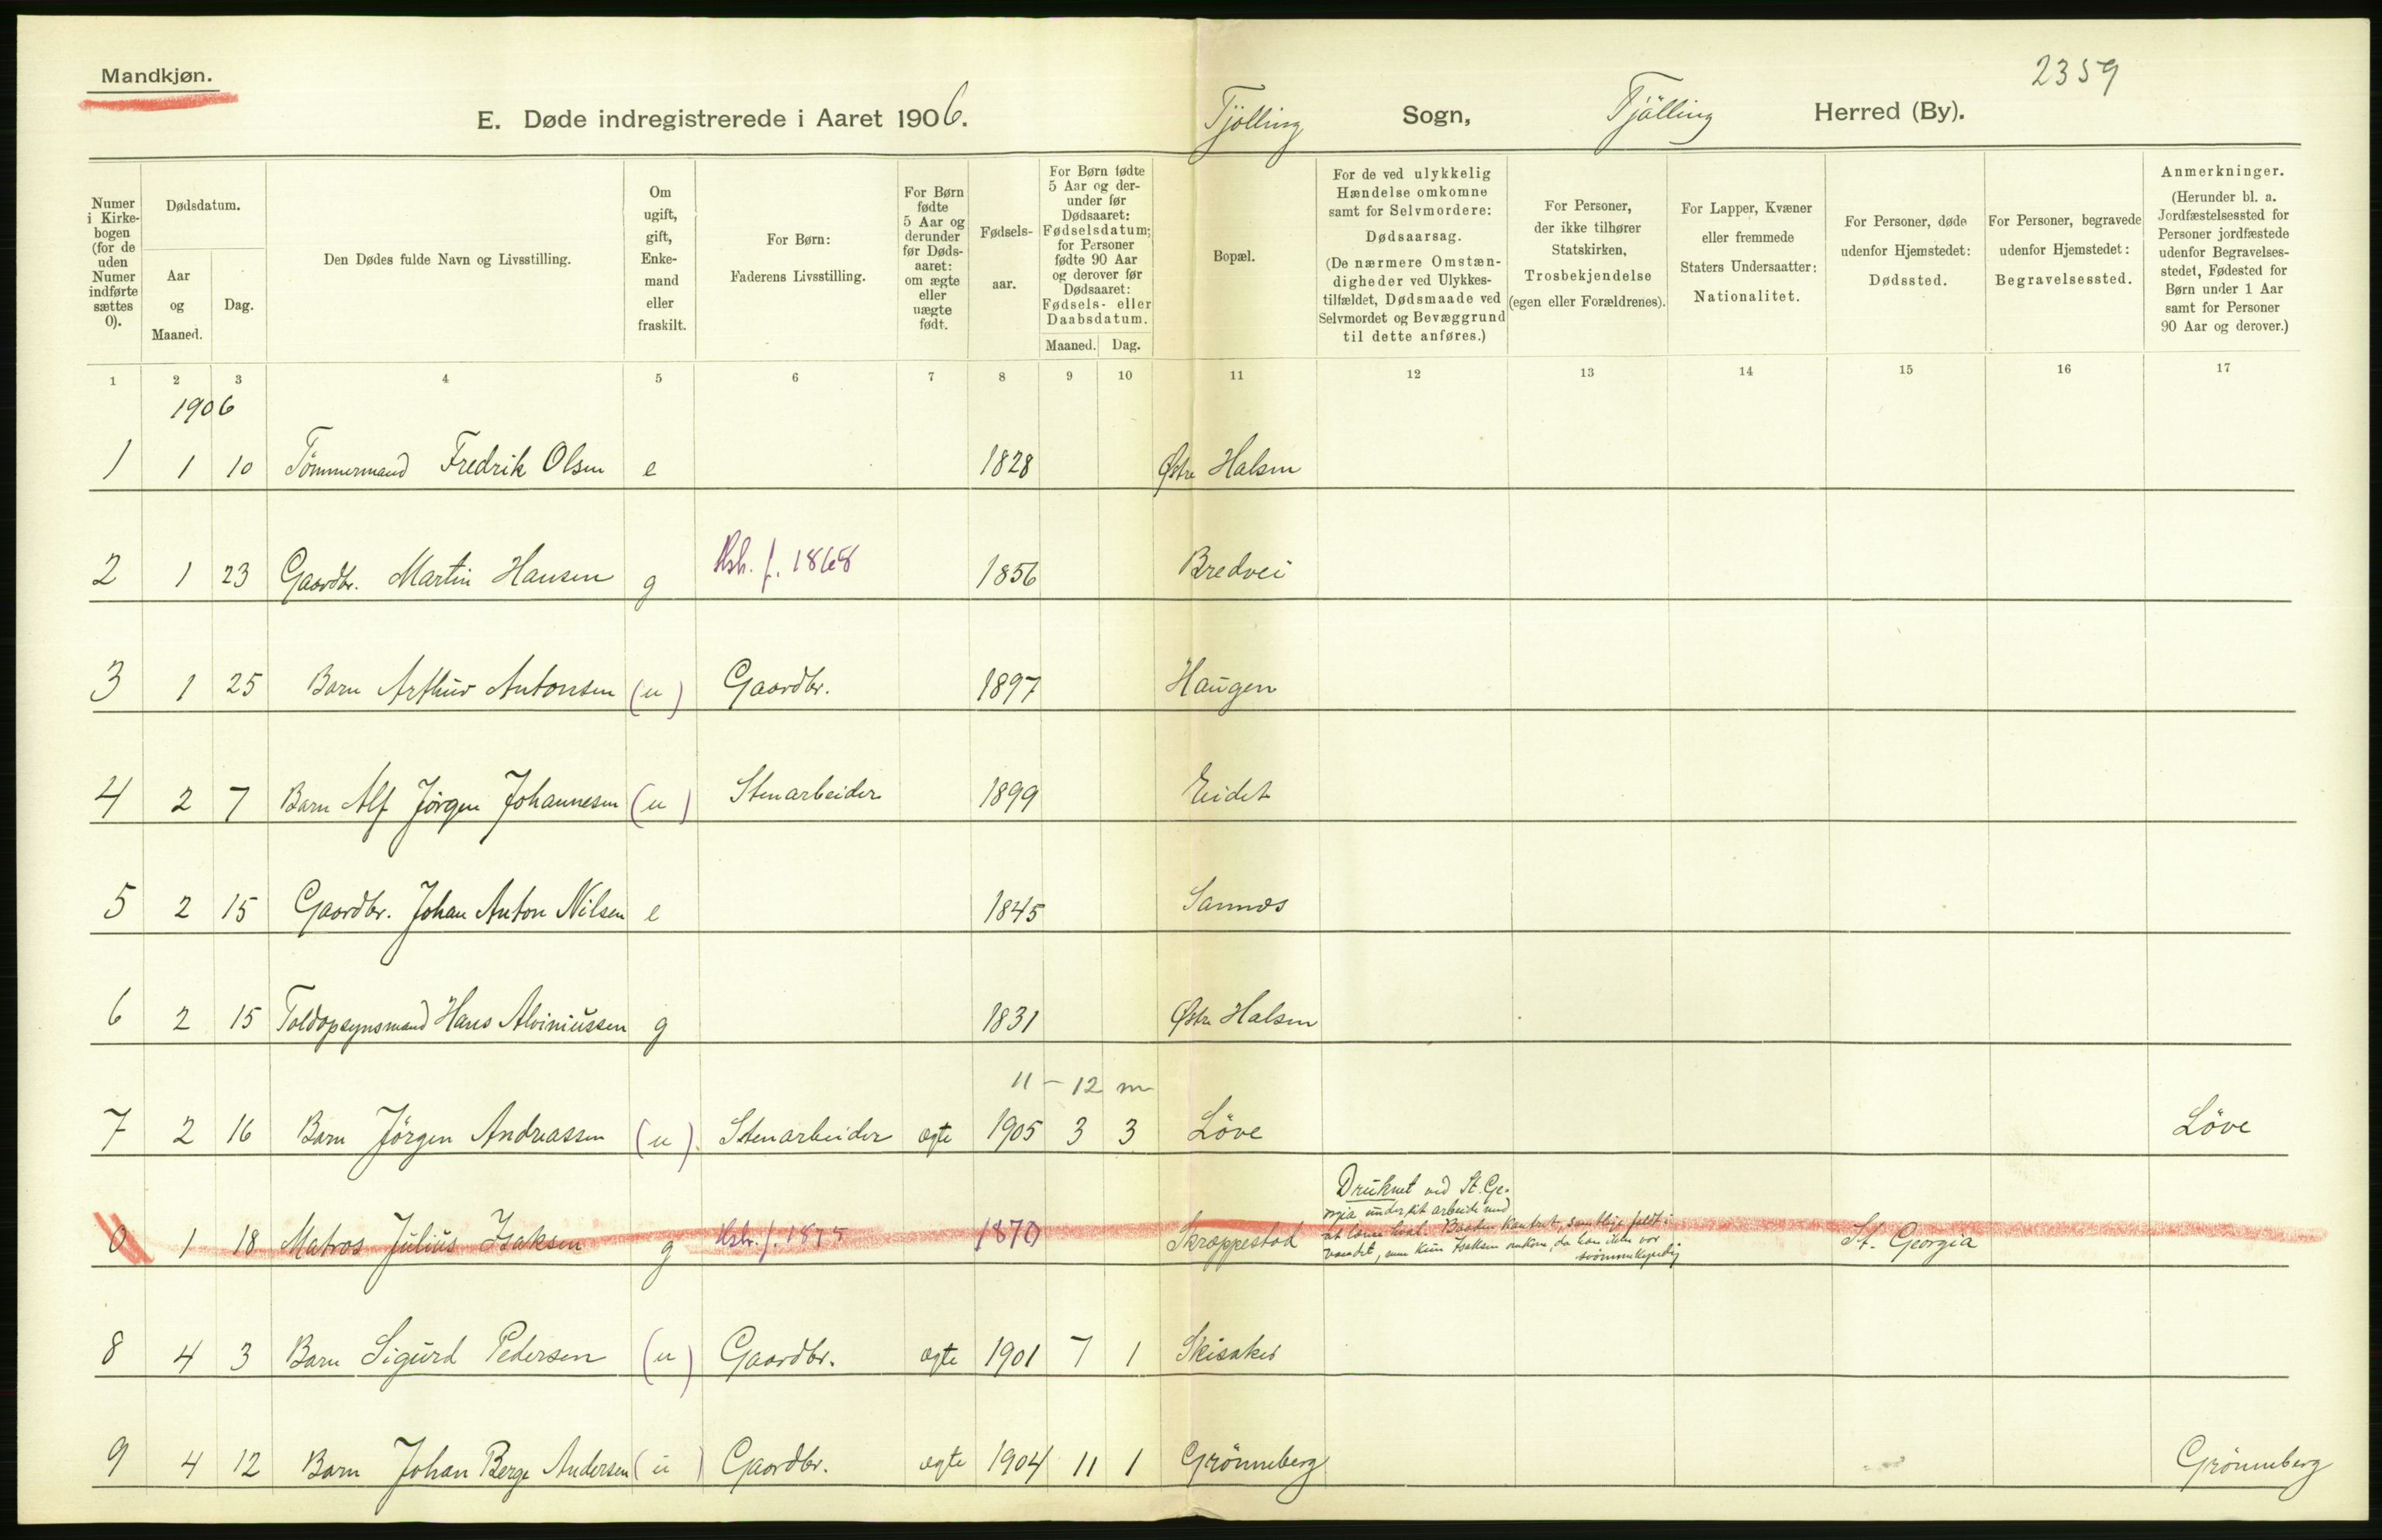 Mandkjøn.
2359
E. Døde indregistrerede i Aaret 1906.
Tjölling Sogn, Tjölling Herred (By).
Numer i Kirke-bogen (for de uden Numer indførte sættes 0).
Dødsdatum.
Aar og Maaned.
Dag.
Den Dødes fulde Navn og Livsstilling.
Om ugift, gift, Enke-mand eller fraskilt.
For Børn: Faderens Livsstilling.
For Børn fødte 5 Aar og derunder før Døds-aaret: om ægte eller uægte født.
Fødsels-aar.
For Børn fødte 5 Aar og der-under før Dødsaaret: Fødselsdatum; for Personer fødte 90 Aar og derover før Dødsaaret: Fødsels- eller Daabsdatum.
Maaned. Dag.
Bopæl.
For de ved ulykkelig Hændelse omkomne samt for Selvmordere: Dødsaarsag. (De nærmere Omstæn-digheder ved Ulykkes-tilfældet, Dødsmaade ved Selvmordet og Bevæggrund til dette anføres.)
For Personer, der ikke tilhører Statskirken, Trosbekjendelse (egen eller Forældrenes).
For Lapper, Kvæner eller fremmede Staters Undersaatter: Nationalitet.
For Personer, døde udenfor Hjemstedet: Dødssted.
For Personer, begravede udenfor Hjemstedet: Begravelsessted.
Anmerkninger. (Herunder bl. a. Jordfæstelsessted for Personer jordfæstede udenfor Begravelses-stedet, Fødested for Børn under 1 Aar samt for Personer 90 Aar og derover.)
1 2 3 4 5 6 7 8 9 10 11 12 13 14 15 16 17
1906
1 1 10 Tömmermand Fredrik Olsen e 1828 Østre Halsen
2 1 23 Gaardbr. Martin Hansen g Hstr. f. 1868 1856 Bredvei
3 1 25 Barn Arthur Antonsen (u) Gaardbr. 1897 Haugen
4 2 7 Barn Alf Jörgen Johannesen (u) Stenarbeider 1899 Eidet
5 2 15 Gaardbr. Johan Anton Nilsen e 1845 Sannæs
6 2 15 Toldopsynsmand Hans Alviniussen g 1831 Østre Halsen
11 - 12 m
7 2 16 Barn Jörgen Andreassen (u) Stenarbeider ægte 1905 3 3 Löve Löve
0 1 18 Matros Julius Isaksen g Hstr. f. 1875 1870 Skræppestad St. Georgia
Druknet ved St. Ge-
orgia under sit arbeide med
kantret, faldt i
vandet, men kun Isaksen omkom, da han ikke var
svömmekyndig
8 4 3 Barn Sigurd Pedersen (u) Gaardbr. ægte 1901 7 1 Skisaker
9 4 12 Barn Johan Berge Andersen (u) Gaardbr. ægte 1904 11 1 Grönneberg Grönneberg